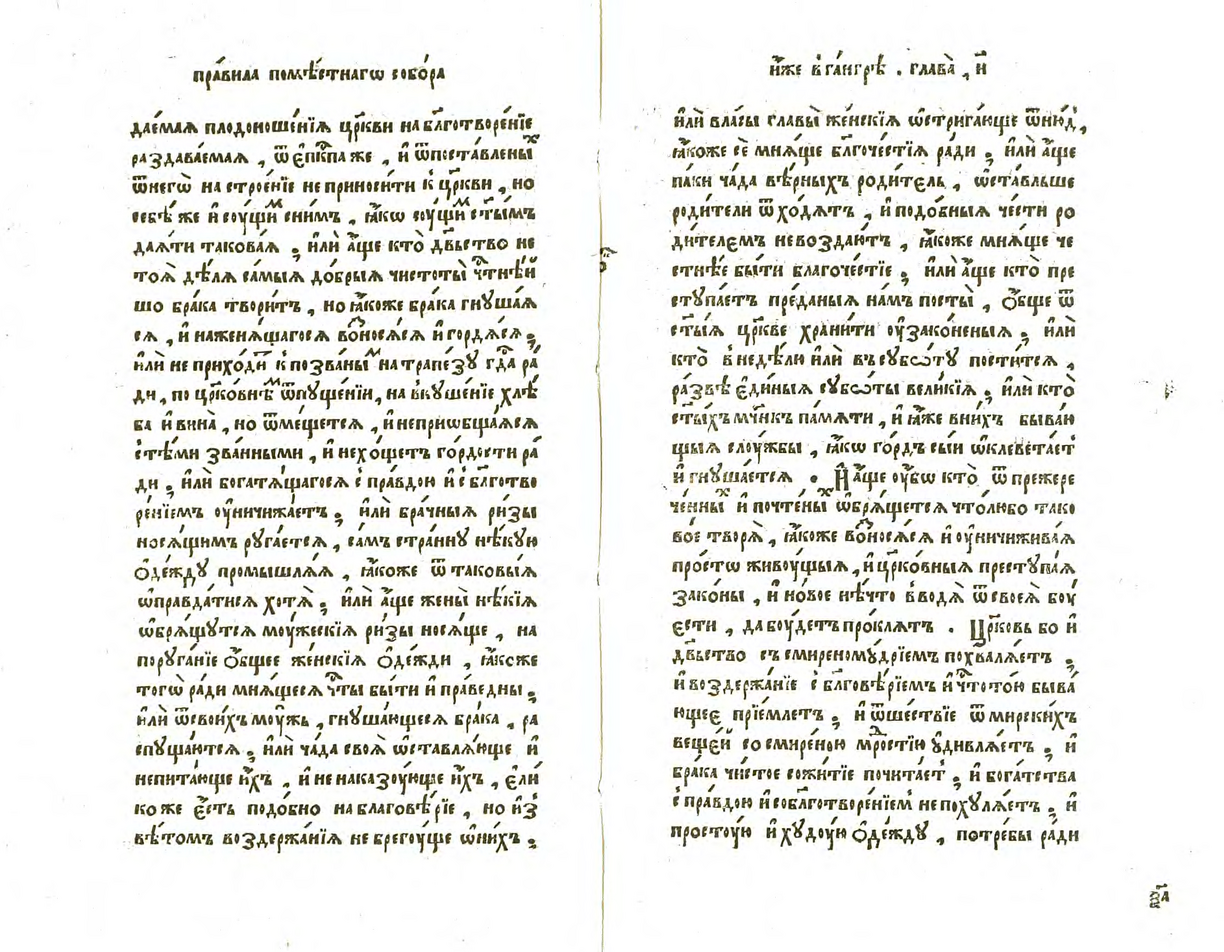 пра́вила помѣ́стнагѡ собо́ра
дае́мая плодоноше́нїѧ цр҃кви на бл҃готворе́нїе
раздава́емая , ѿ є҆пⷭ҇кпа же , и҆ ѿ поставлены́х
ѿ него̀ на строе́нїе не приноси́ти к цр҃кви , но
себѣ́ же и҆ соу́щим с ни́мъ , ꙗ҆́кѡ соу́щим ст҃ы́мъ
даѧ́ти таковаѧ ; и҆лѝ а҆́ще кто̀ дв҃ьство не
тоѧ̀ дѣ́лѧ са́мыѧ до́брыѧ чистоты̀ чⷭ҇тнѣ́й
шо бра́ка твори́тъ , но ꙗ҆́коже бра́ка гнуша́ѧ
сѧ , и҆ на женѧ́щагосѧ вⸯзно́сѧсѧ и҆ гордѧ́сѧ ;
и҆лѝ не прихо́ди к позва́ным на трапе́зу гдⷭ҇а ра́
ди , по цр҃ко́внѣм ѿпуще́нїи , на вкуше́нїе хлѣ́
ба и҆ вина̀ , но ѿме́щетсѧ , и҆ не приѡбща́ѧсѧ
с тѣ́ми зва́нными , и҆ не хо́щетъ го́рдости ра́
ди ; и҆лѝ богатѧ́щагосѧ с пра́вдою и҆ с бл҃готво
ре́нїемъ оу҆ничижа́етъ ; и҆лѝ бра́чныѧ ри́зы
носѧ́щимъ руга́етсѧ , са́мъ стра́нну нѣ́кую
ѻ҆де́жду промышлѧ́ѧ , ꙗ҆́коже ѿ таковы́ѧ
ѡ҆правда́тисѧ хотѧ̀ ; и҆лѝ а҆́ще жены̀ нѣ́кїѧ
ѡ҆брѧ́щутсѧ моу́жескїѧ ри́зы носѧ́ще , на
поруга́нїе ѻ҆́бщее же́нскїѧ ѻ҆де́жди , ꙗ҆́коже
тогѡ̀ ради мнѧ́щесѧ чⷭ҇ты бы́ти и҆ пра́ведны ;
и҆лѝ ѿ свои́хъ моу́жь , гнуша́ющесѧ бра́ка , ра
спуща́ютсѧ ; и҆лѝ ча́да своѧ̀ ѡ҆ставлѧ́юще и҆
непита́юще и҆́хъ , и҆ не наказоу́юще и҆́хъ , є҆ли́
ко же є҆́сть подо́бно на благовѣ́рїе , но и҆з
вѣ́томъ воздержа́нїѧ не брегоу́ще ѡ҆ ни́хъ ;
и҆́же в га́нгрѣ . глава̀ , и҃
и҆лѝ власы̀ главы̀ же́нскїѧ ѡ҆стрига́юще ѿню́д ,
ꙗ҆́коже сѐ мнѧ́ще бл҃гоче́стїѧ ра́ди ; и҆лѝ а҆́ще
па́ки ча́да вѣ́рныхъ роди́тель , ѡ҆ста́вльше
роди́тели ѿхо́дѧтъ , и҆ подо́бныѧ че́сти ро
ди́телемъ не воздаю́тъ , ꙗ҆́коже мнѧ́ще че
стнѣ́е бы́ти благоче́стїе ; и҆лѝ а҆́ще кто̀ пре
ступа́етъ пре́даныѧ на́мъ посты̀ , ѻ҆́бще ѿ
ст҃ы́ѧ цр҃кве храни́ти оу҆зако́неныѧ ; и҆лѝ
кто̀ в недѣ́лю и҆лѝ въ субѡ́ту пости́тсѧ ,
ра́звѣ є҆ди́ныѧ субѡ́ты вели́кїѧ ; и҆лѝ кто̀
ст҃ы́хъ мч҃нкъ па́мѧти , и҆ ꙗ҆́же в ни́хъ быва́ю
щыѧ слоу́жбы , ꙗ҆́кѡ го́рдъ сы́и ѡ҆клевета́ет
и҆ гнуша́етсѧ . И҆ а҆́ще оу҆́бѡ кто̀ ѿ прежере
че́нных и҆ почте́ных ѡ҆брѧ́щетсѧ что̀любо тако
во́е творѧ̀ , ꙗ҆́коже вⸯзно́сѧсѧ и҆ оу҆ничижи́ваѧ
про́стѡ живоу́щыѧ , и҆ цр҃ко́вныѧ преступа́ѧ
зако́ны , и҆ но́вое нѣ́что в водѧ̀ ѿ своеѧ̀ боу́
є҆сти , да боу́детъ про́клѧтъ . Цр҃ковь бо и҆
дв҃ьство съ смиреному́дрїемъ похвалѧ́етъ ;
и҆ воздержа́нїе с бл҃говѣ́рїемъ и҆ чⷭ҇тото́ю быва́
ющее прїе́млетъ ; и҆ ѿше́ствїе ѿ мирски́хъ
веще́й со смире́ною мⷣростїю удивлѧ́етъ ; и҆
бра́ка чи́стое сожи́тїе почита́ет ; и҆ бога́тства
с пра́вдою и҆ со благотворе́нїем не поху́лѧетъ ; и҆
простоу́ю и҆ худоу́ю ѻ҆де́жду , потре́бы ра́ди